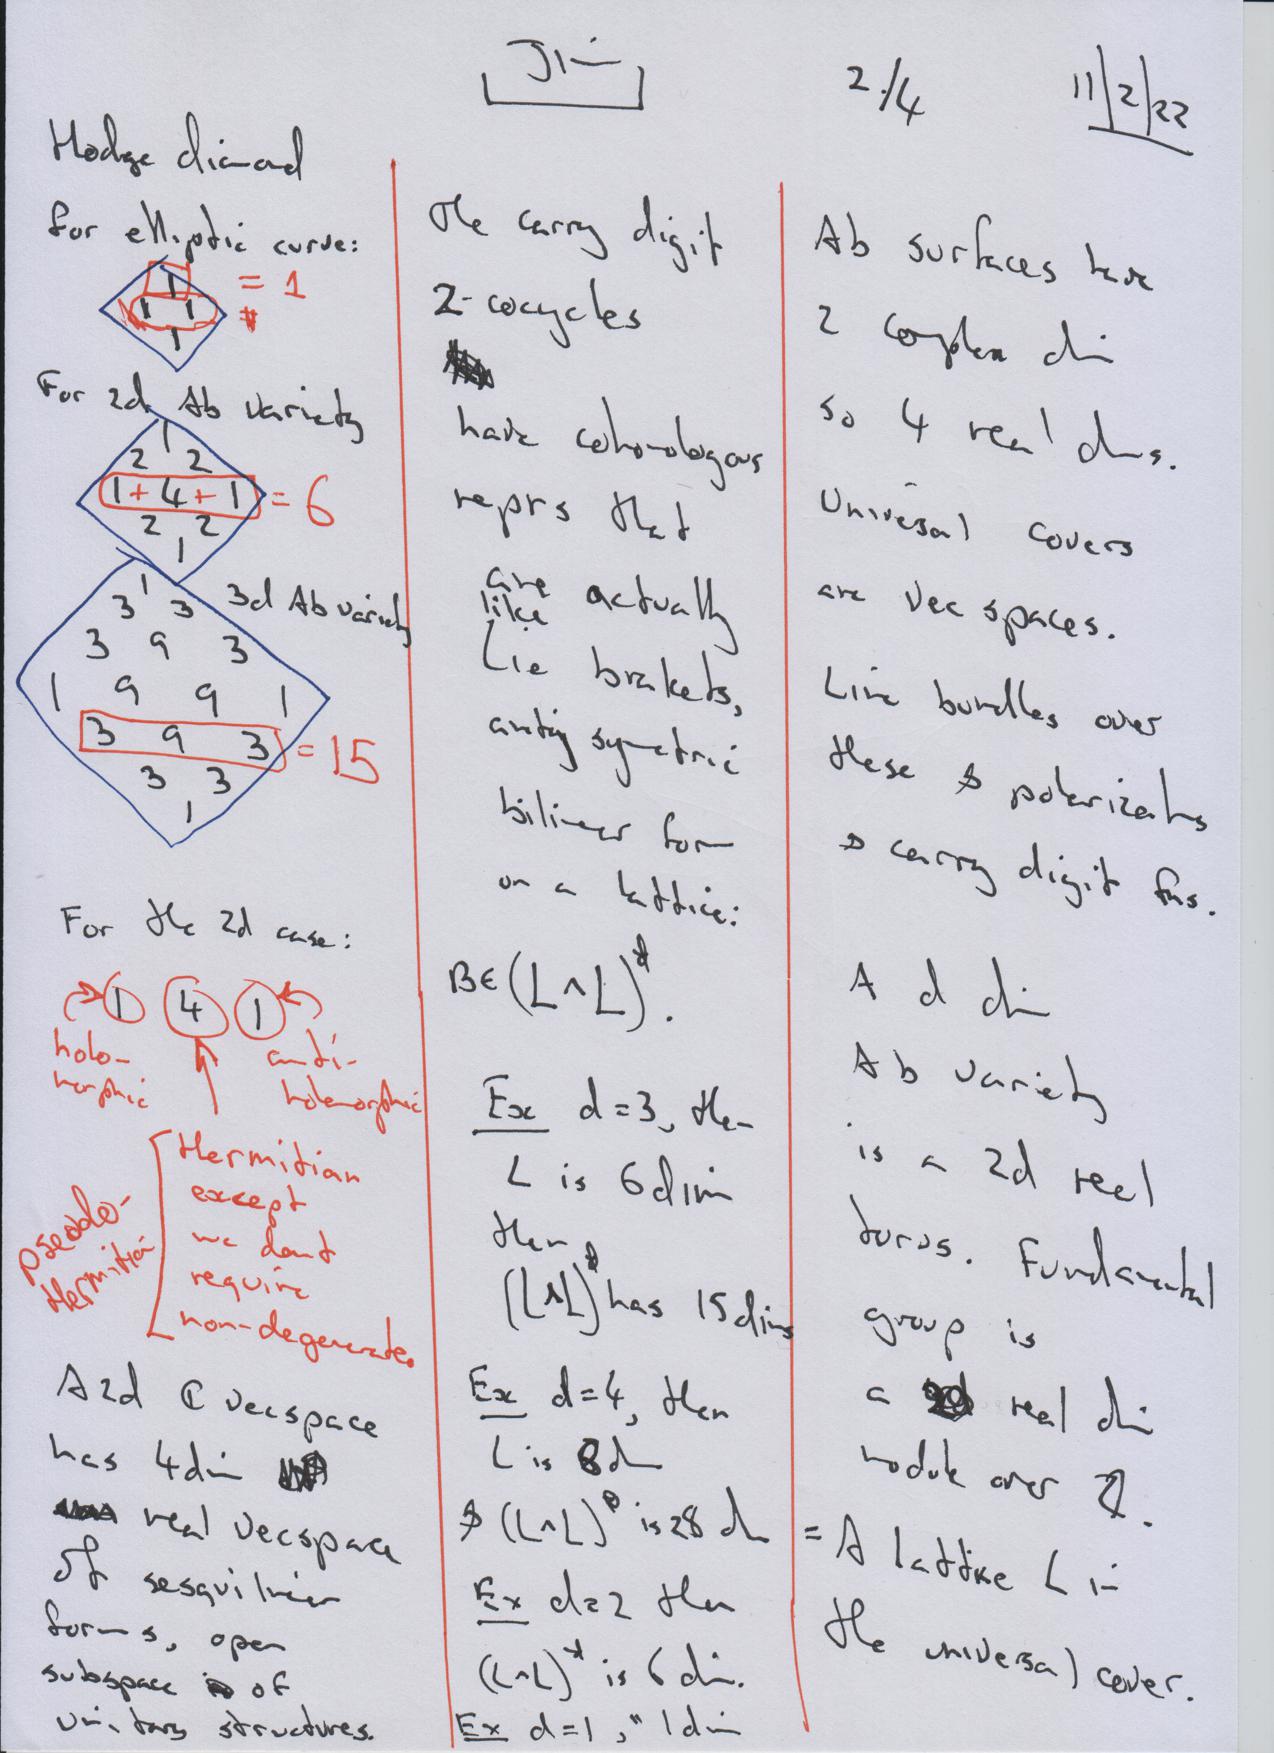 Jim
2/4
11/2/22
Hodge diamond
for elliptic curve:
1 = 1
1 1
1
For 2d Ab variety
1
2 2
1 + 4 + 1 = 6
2 2
1
3d Ab variety
1
3 3
3 9 3
1 9 9 1
3 9 3 = 15
3 3
1
For the 2d case:
1 4 1
holo-
morphic
anti-
holomorphic
pseudo-
Hermitian
Hermitian
except
we dont
require
non-degenerate.
A 2d ℂ vecspace
has 4dim
real vecspace
of sesquilinear
forms, open
subspace of
unitary structures.
The carry digit
2-cocycles
have cohomologous
reprs that
are actually
like
Lie brakets,
antisymetric
bilinear form
on a lattice:
B∈(L∧L)*.
Ex d=3, then
L is 6dim
then
(L∧L)* has 15dims
Ex d=4, then
L is 8dim
& (L∧L)* is 28 dim
Ex d=2 then
(L∧L)* is 6 dim.
Ex d=1, " 1dim
Ab surfaces have
2 complex dim
so 4 real dims.
Universal covers
are vec spaces.
Line bundles over
these & polarizatns
& carry digit fns.
A d dim
Ab variety
is a 2d real
torus. Fundamental
group is
a real dim
module over ℤ.
= A lattice L in
the universal cover.